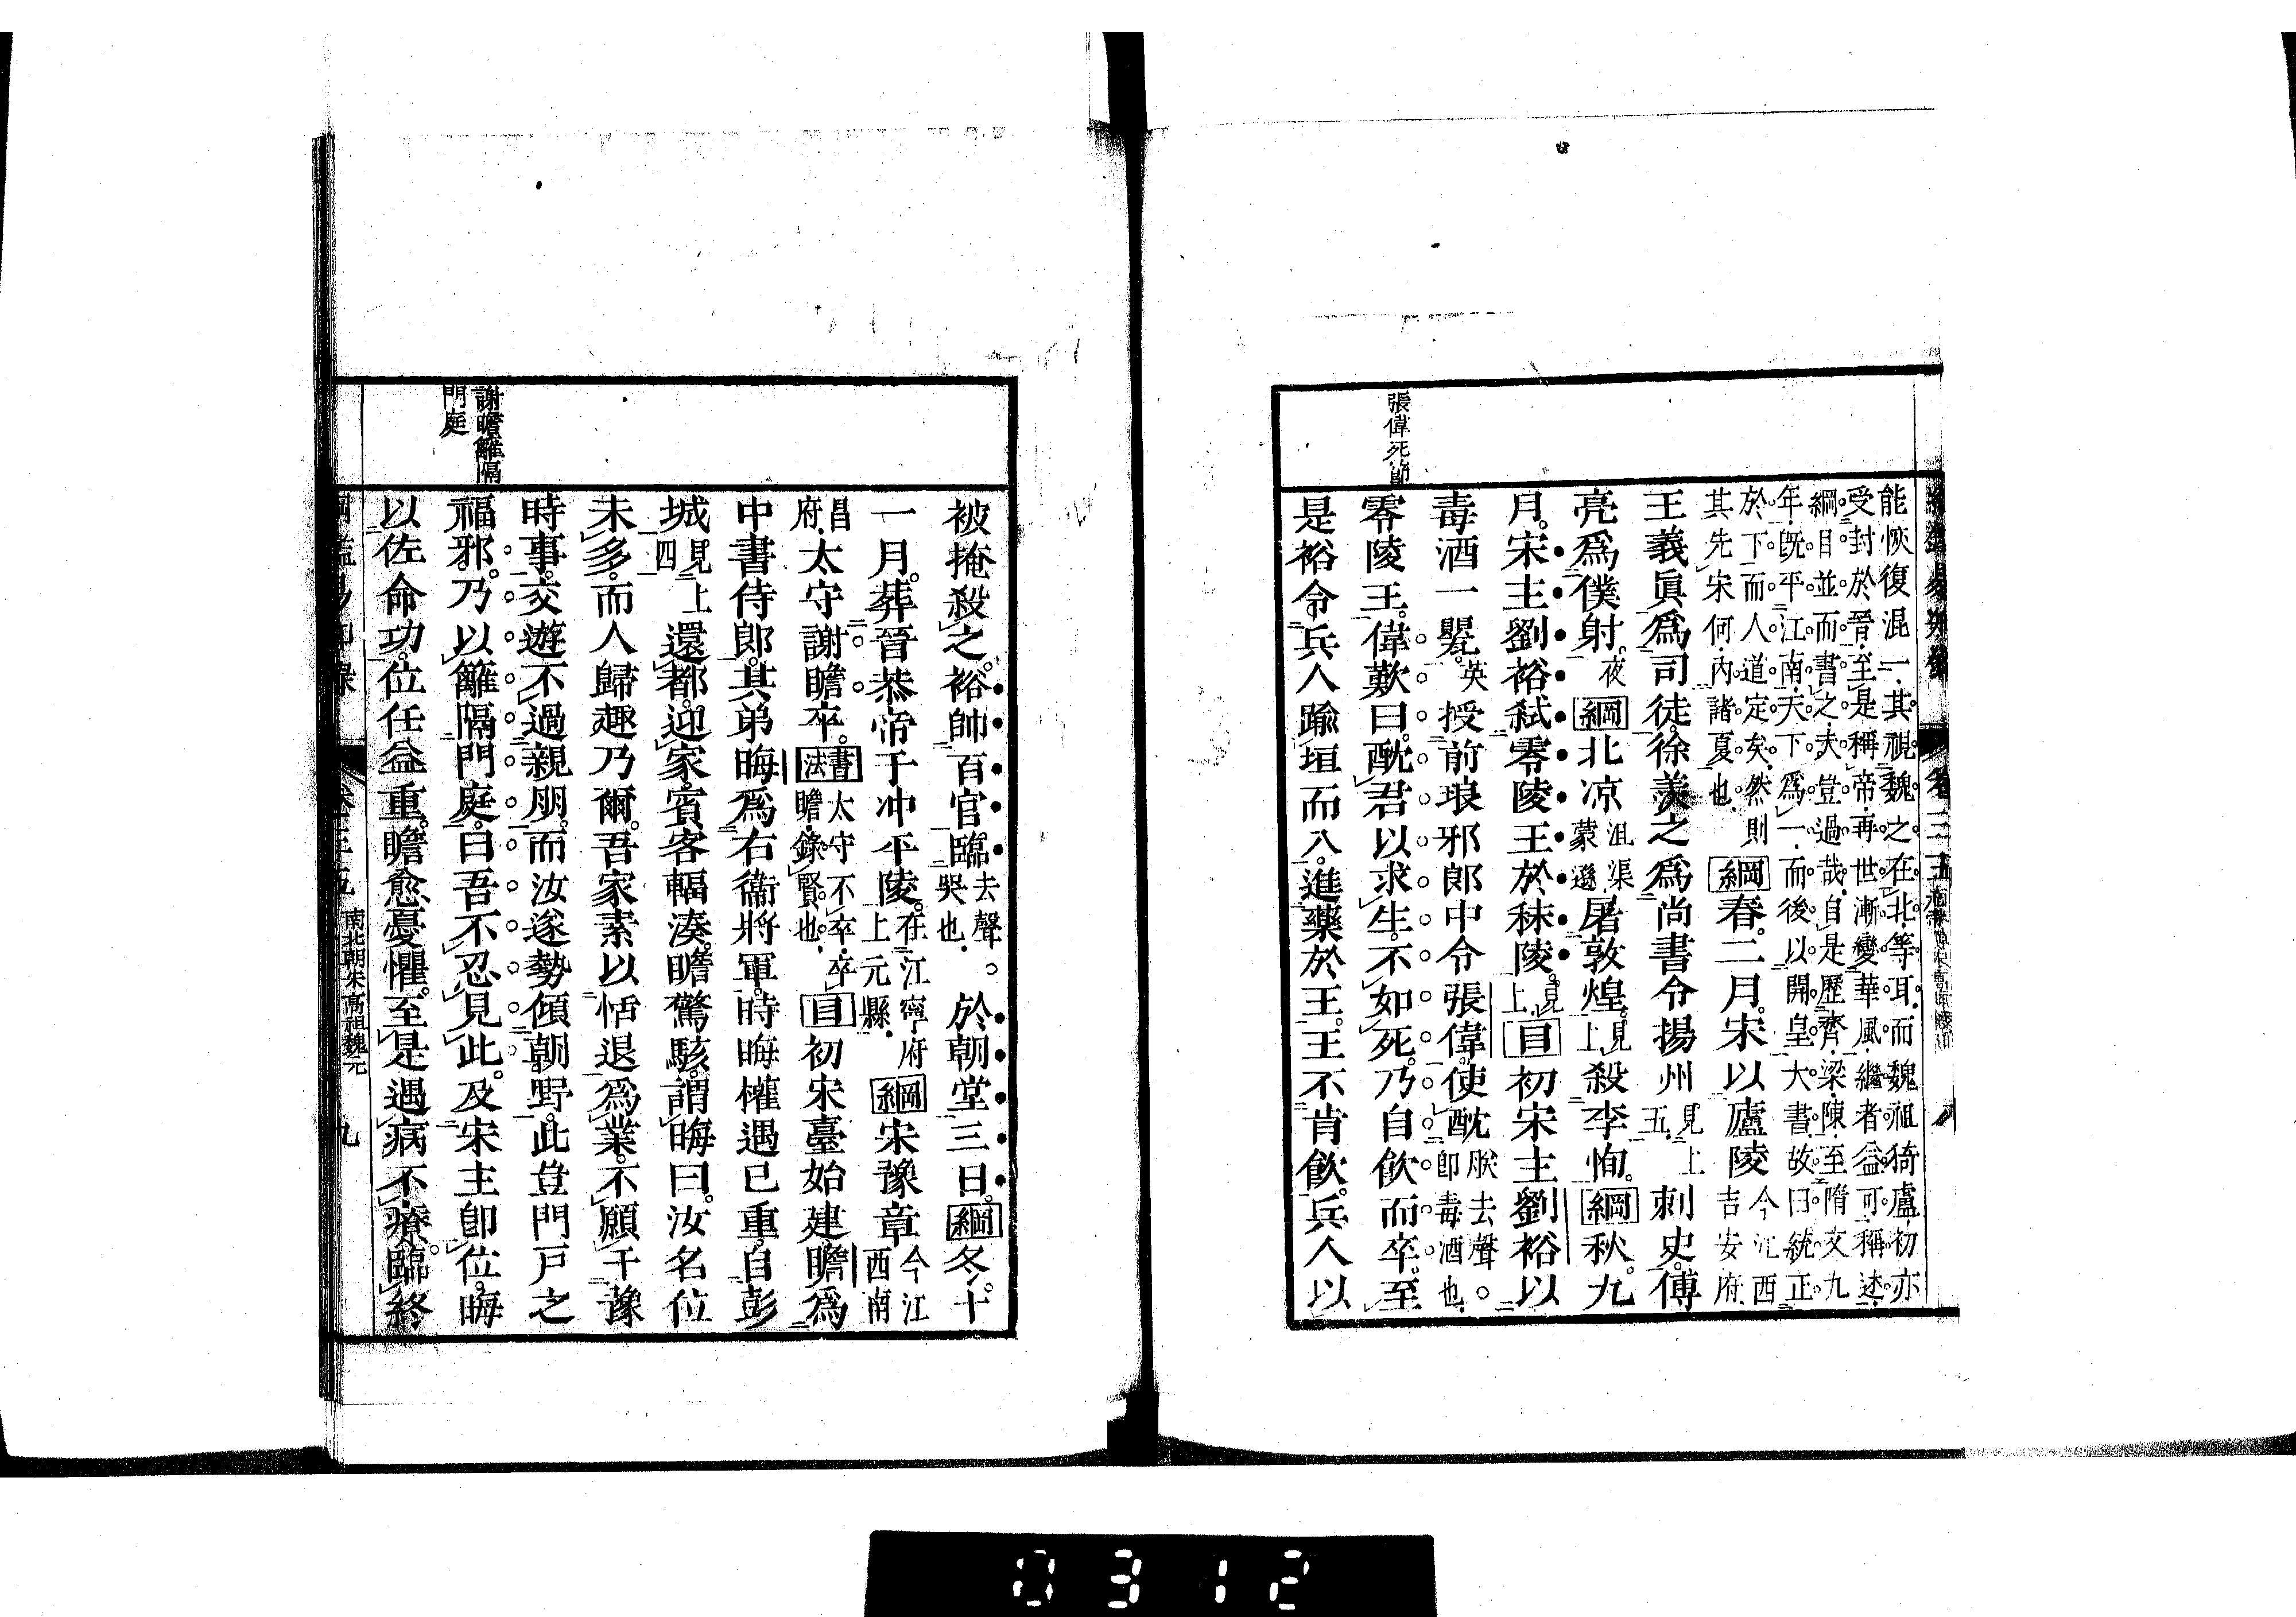 張偉死節
能恢復混一其視魏之在北等耳而魏祖猗盧初亦
受封於晉至是稱帝再世漸變華風繼者益可稱述
綱目並而書之夫豈過哉自是歷齊梁陳至隋文九
年既平江南天下爲一而後以開皇大書故曰統正
於下而人道定矣然則
其先宋何內諸夏也
綱春二月宋以廬陵
今江西
吉安府
王義眞爲司徒徐羨之爲尚書令揚州
見上
五
刺史傅
亮爲僕射
夜
綱北凉
沮渠
蒙遜
屠敦煌
見
上
殺李恂綱秋九
月宋主劉裕弑零陵王於秣陵
見
上
目初宋主劉裕以
毒酒一甖
英
授前琅邪郎中令張偉使酖
朕去聲
卽毒酒也
零陵王偉歎曰酖君以求生不如死乃自飮而卒至
是裕令兵人踰垣而入進藥於王王不肯飮兵人以
謝瞻籬隔
門庭
被掩殺之裕帥百官臨
去聲
哭也
於朝堂三日綱冬十
一月葬晉恭帝于冲平陵
在江寧府
上元縣
綱宋豫章
今江
西南
昌
府
太守謝瞻卒書法
太守不卒卒
瞻錄賢也
目初宋臺始建瞻爲
中書侍郎其弟晦爲右衞將軍時晦權遇已重自彭
城
見上
四
還都迎家賓客輻湊瞻驚駭謂晦曰汝名位
未多而人歸趣乃爾吾家素以恬退爲業不願干豫
時事交遊不過親朋而汝遂勢傾朝野此豈門戸之
福邪乃以籬隔門庭曰吾不忍見此及宋主卽位晦
以佐命功位任益重瞻愈憂懼至是遇病不療臨終
南北朝宋高祖魏元
九
0312